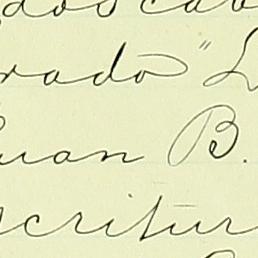 dos cab
rado" L
Juan B.
scritur